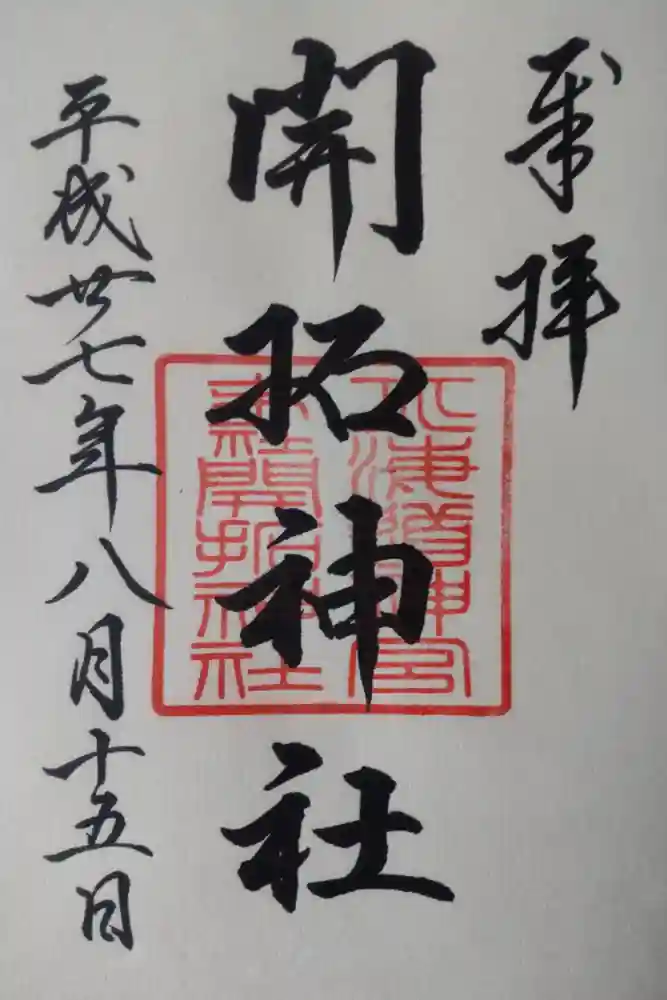 奉拝
開拓神社
北海道神宮
末社開拓神社
平成廿七年八月十五日